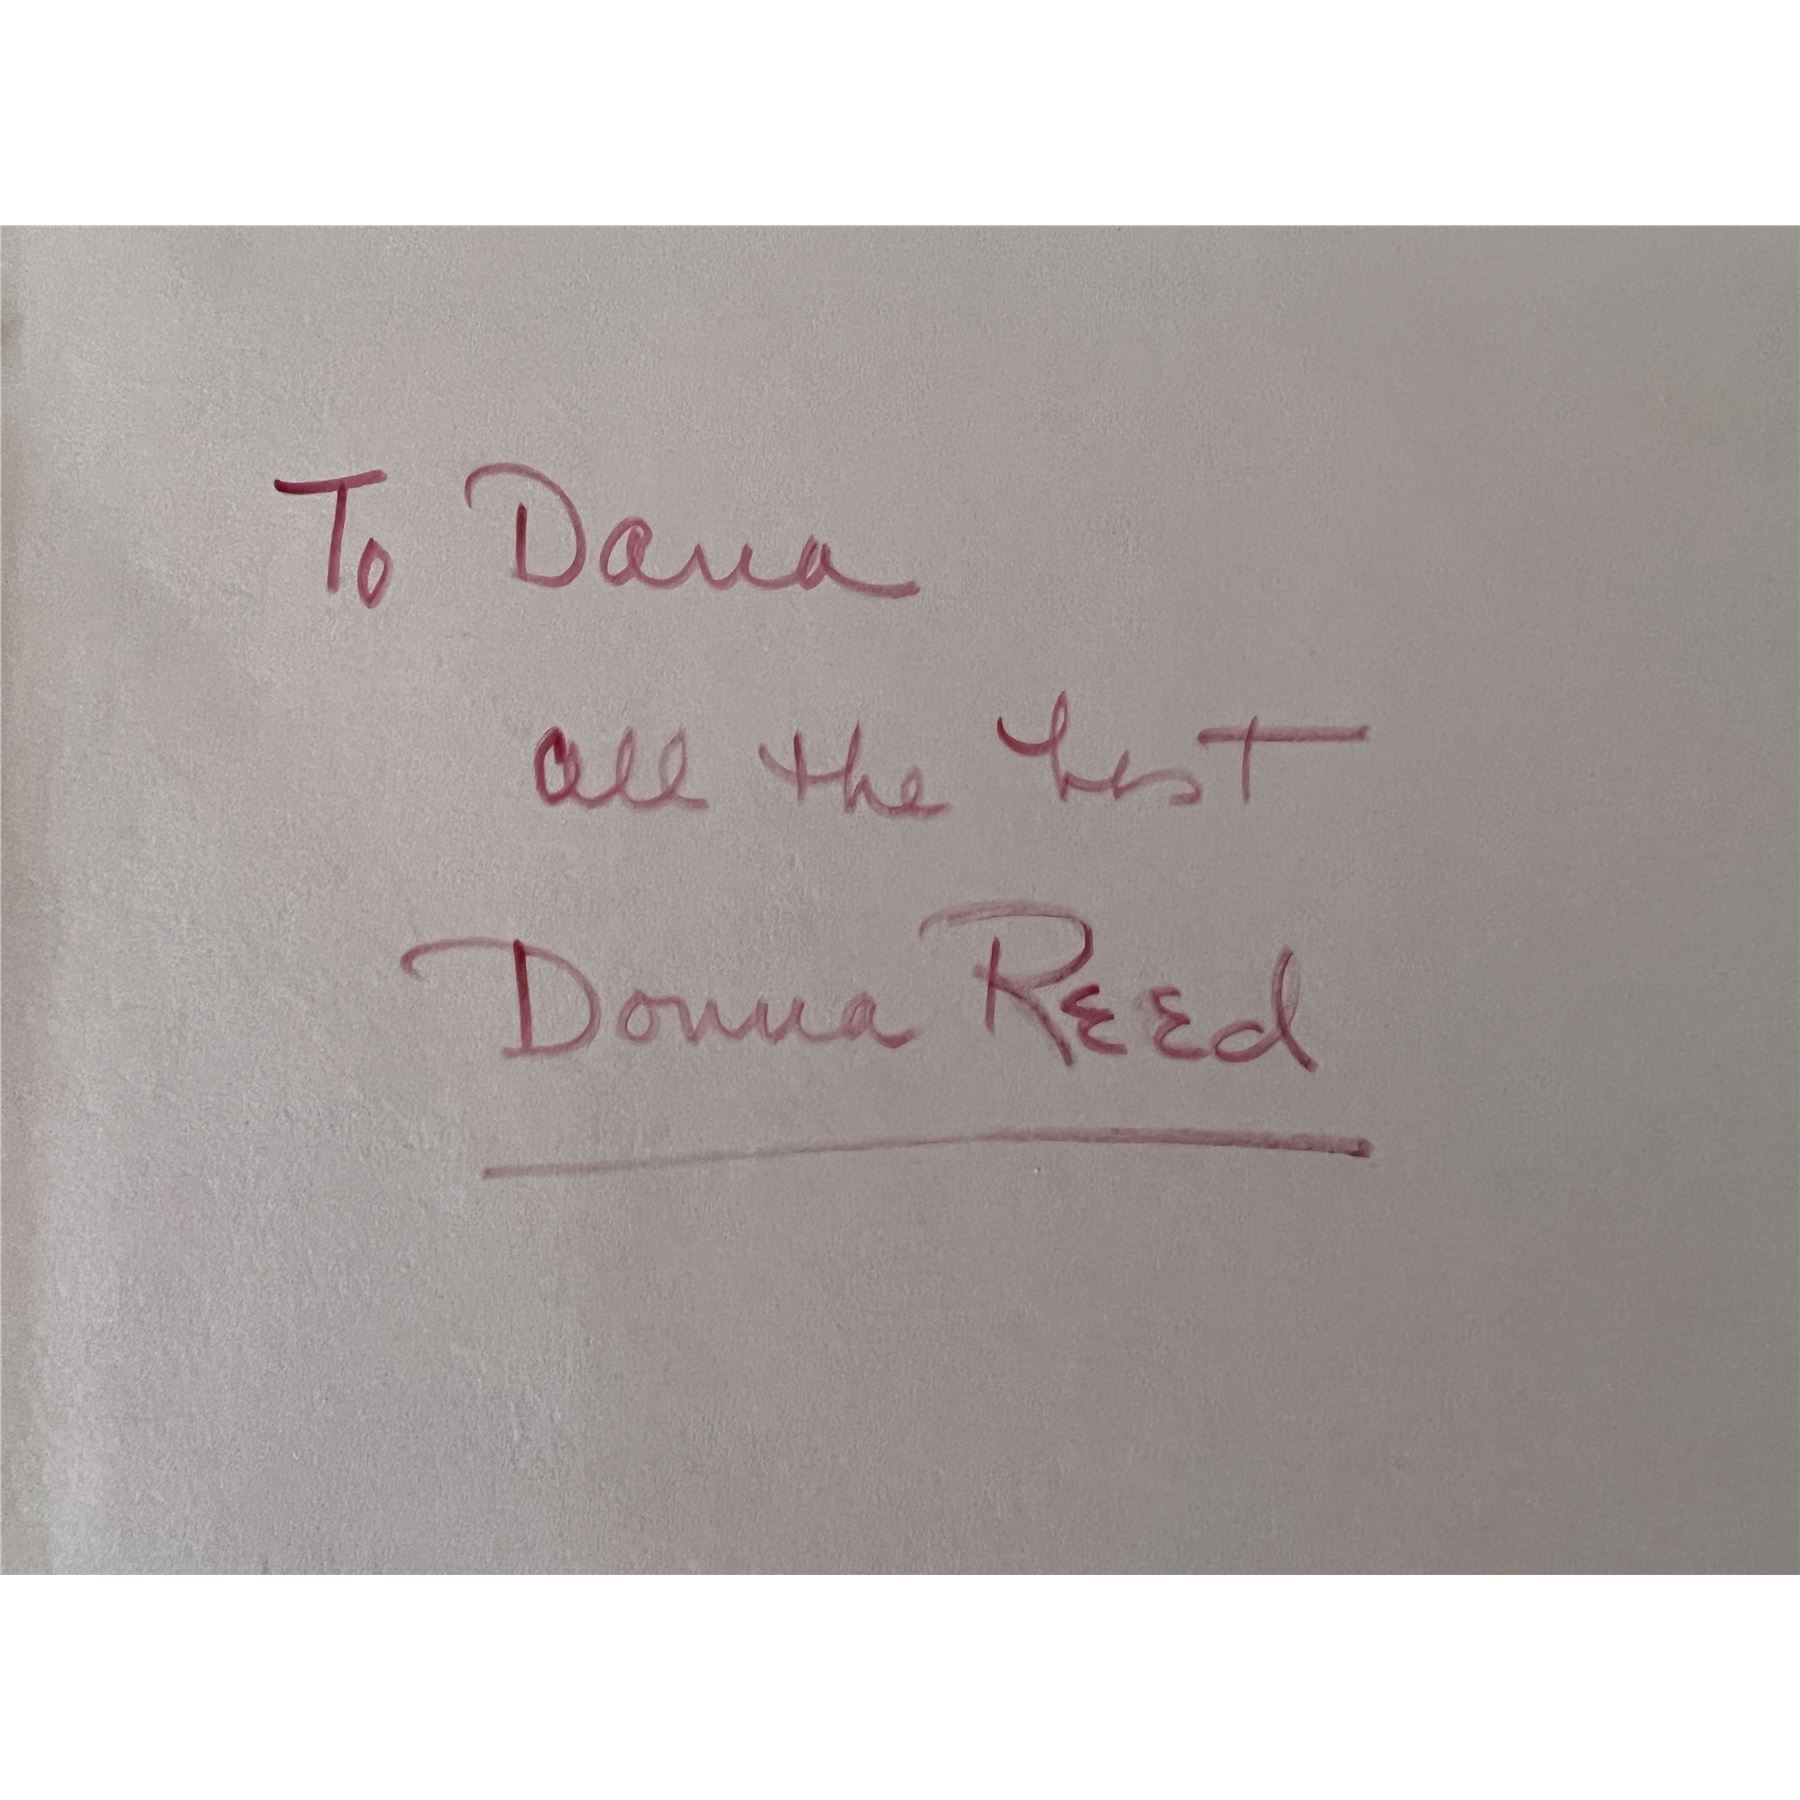 To Dana
all the best
Donna Reed